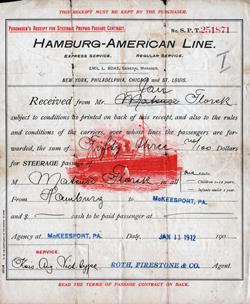 THIS RECEIPT MUST BE KEPT BY THE PURCHASER.
PURCHASER'S RECEIPT FOR STEERAGE PREPAID PASSAGE CONTRACT.
No. S.P.T. 251871
HAMBURG-AMERICAN LINE.
EXPRESS SERVICE. REGULAR SERVICE.
EMIL L. BOAS, GENERAL MANAGER.
NEW YORK, PHILADELPHIA, CHICAGO AND ST. LOUIS.
Received from Mr.
subject to conditions as printed on back of this receipt, and also to the rules
and conditions of the carriers, over whose lines the passengers are for-
warded, the sum of Fifty three /100 Dollars
for STEERAGE passage
M Children
Infants under 1 year.
From Hamburg to MCKEESPORT, PA.
and $ cash to be paid passenger at
Agency at MCKEESPORT, PA. Date JAN 11 1912 190
SERVICE.
ROTH, FIRESTONE & CO. Agent.
READ THE TERMS OF PASSAGE CONTRACT ON BACK.